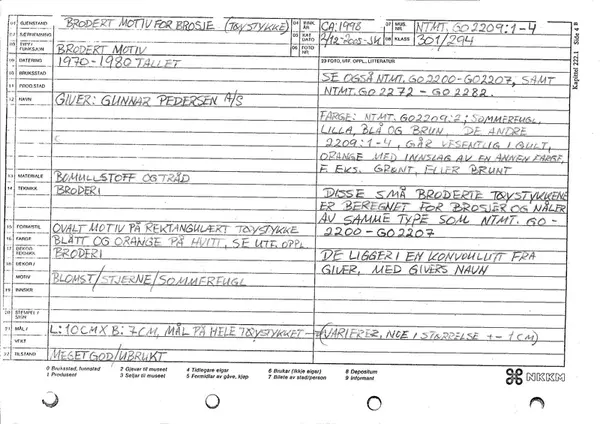 01 GJENSTAND BRODERT MOTIV FOR BROSJE (TØYSTYKKE) 04 INNK. ÅR CA. 1998 07 MUS. NR. NTMT. GO2209:1-4
02 SÆRNEMNING 05 KAT DATO 2/12-2005-JH 08 KLASS 301/294
03 TYPE/FUNKSJON BRODERT MOTIV 06 FOTO NR
09 DATERING 1970-1980 TALLET 23 FOTO, UTF. OPPL., LITTERATUR
10 BRUKSSTAD SE OGSÅ NTMT. GO2200-GO2207, SAMT
11 PROD.STAD NTMT. GO2272-GO2282.
12 NAVN GIVER: GUNNAR PEDERSEN A/S
FARGE: NTMT. GO2209:2; SOMMERFUGL,
LILLA, BLÅ OG BRUN. DE ANDRE
2209:1-4, GÅR VESENTLIG I GULT,
ORANGE MED INNSLAG AV EN ANNEN FARGE,
F. EKS. GRØNT, ELLER BRUNT
13 MATERIALE BOMULLSTOFF OG TRÅD
14 TEKNIKK BRODERI
DISSE SMÅ BRODERTE TØYSTYKKENE
ER BEREGNET FOR BROSJER OG NÅLER
AV SAMME TYPE SOM NTMT. GO-
2200-GO2207
15 FORM/STIL OVALT MOTIV PÅ REKTANGULÆRT TØYSTYKKE
16 FARGE BLÅTT OG ORANGE PÅ HVITT, SE UTF. OPPL.
17 DEKOR-TEKNIKK BRODERI
18 DEKOR/MOTIV BLOMST/STJERNE/SOMMERFUGL
DE LIGGER I EN KONVOLUTT FRA
GIVER, MED GIVERS NAVN
19 INNSKR
20 STEMPEL/SIGN
21 MÅL/VEKT L: 10CM X B: 7CM, MÅL PÅ HELE TØYSTYKKET (VARIERER NOE I STØRRELSE +-1CM)
22 TILSTAND MEGET GOD/UBRUKT
Kapittel 222.1 Side 4
0 Bruksstad, funnstad 2 Gjevar til museet 4 Tidlegare eigar 6 Brukar (ikkje eigar) 8 Depositum
1 Produsent 3 Seljar til museet 5 Formidlar av gåve, kjøp 7 Bilete av stad/person 9 Informant
NKKM